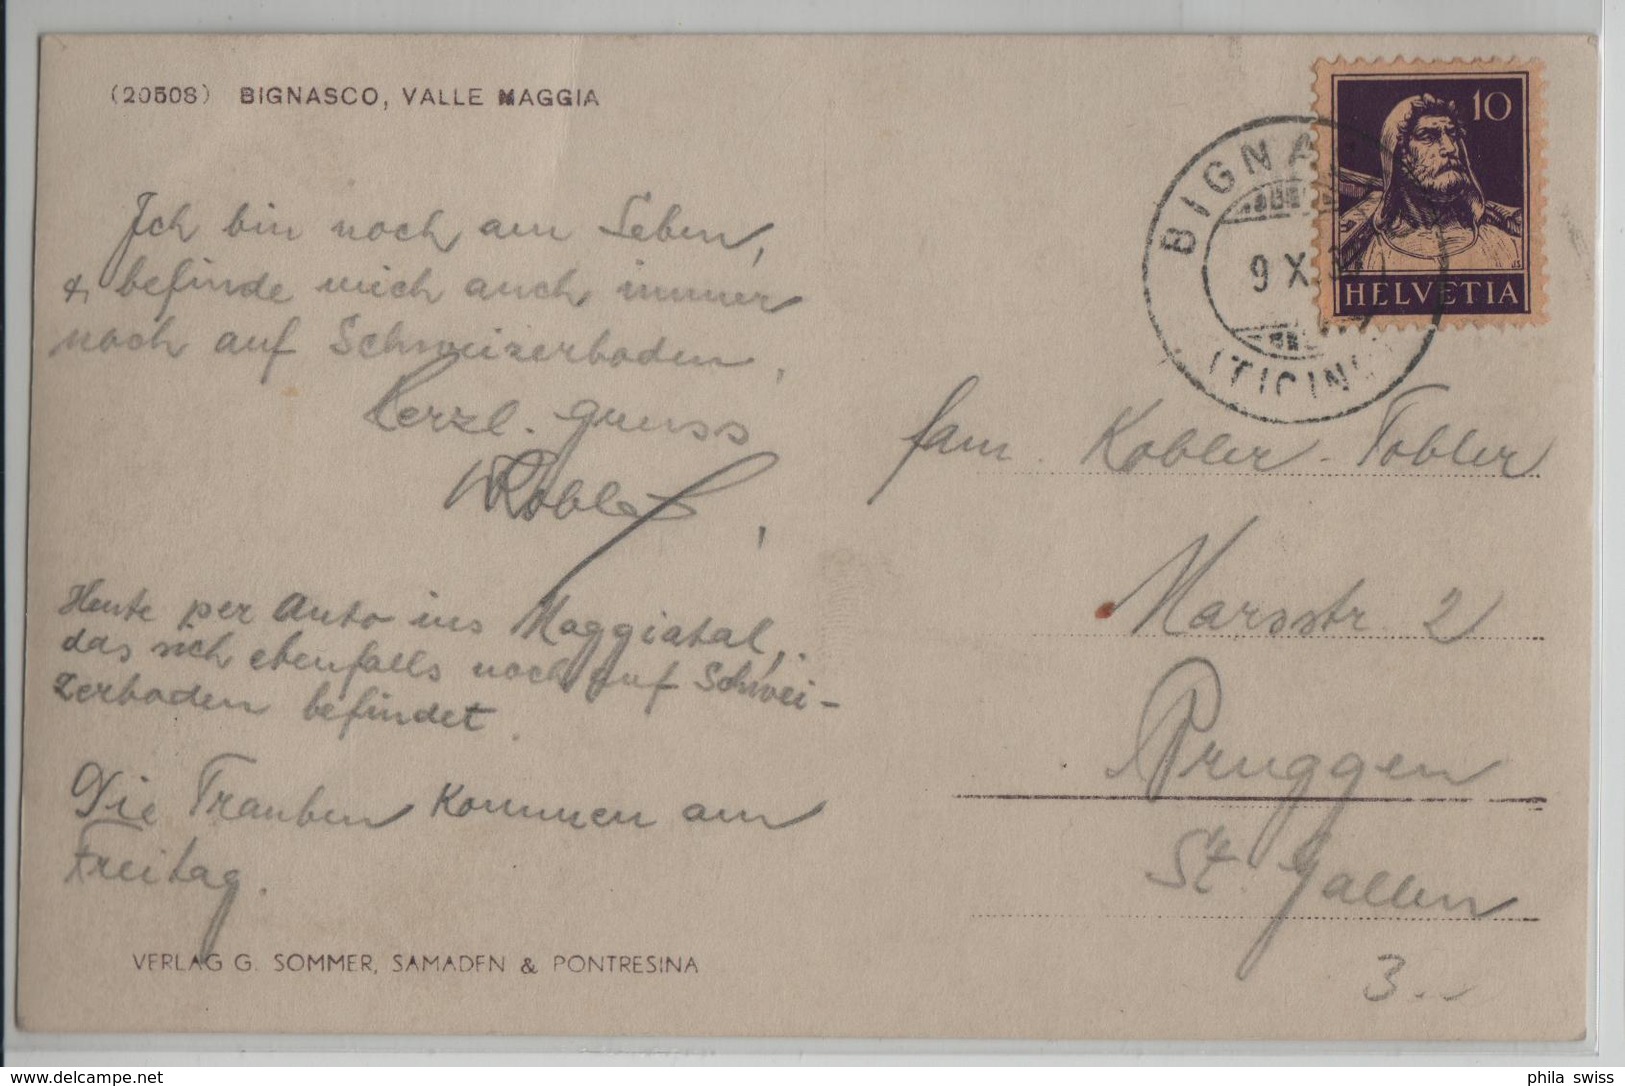 (20508) BIGNASCO, VALLE MAGGIA
Ich bin noch am Leben,
& befinde mich auch immer
noch auf Schweizerboden,
Herzl. Gruss
WKobler
Heute per Auto ins Maggiatal,
das sich ebenfalls noch auf Schwei-
zerboden befindet.
Die Trauben kommen am
Freitag.
VERLAG G. SOMMER, SAMADEN & PONTRESINA
10
HELVETIA
BIGNA
9 X
(TICINO
Fam. Kobler-Tobler
Marsstr. 2
Bruggen
St. Gallen
3..
delcampe.net
phila_swiss